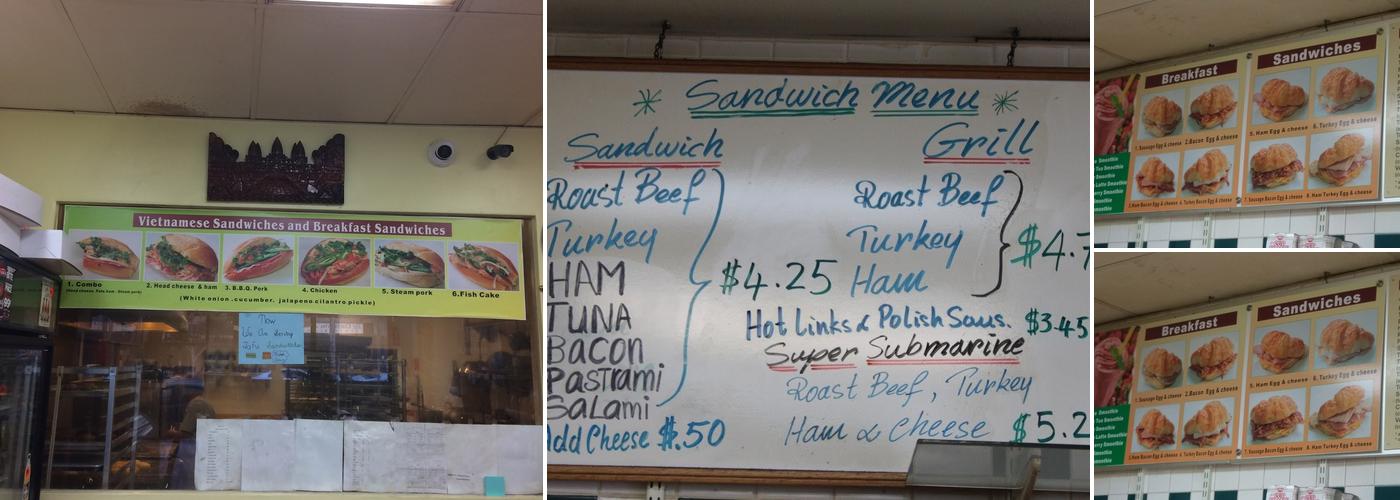 Vietnamese Sandwiches and Breakfast Sandwiches
1. Combo
2. Head cheese & ham
3. B.B.Q. Pork
4. Chicken
5. Steam pork
6.Fish Cake
(White onion.cucumber. jalapeno.cilantro.pickle)
Now
We Are Serving
Tofu Sandwiches
Sandwich Menu
Sandwich
Roast Beef
Turkey
HAM
TUNA
Bacon
Pastrami
Salami
$4.25
Add Cheese $.50
Grill
Roast Beef
Turkey
Ham
$4.7
Hot Links & Polish Saus. $3.45
Super Submarine
Roast Beef, Turkey
Ham & Cheese $5.2
Breakfast
1. Sausage Egg & cheese 2.Bacon Egg & cheese
3.Ham Bacon Egg & cheese 4. Turkey Bacon Egg & cheese
Sandwiches
5. Ham Egg & cheese 6. Turkey Egg & cheese
7. Sausage Bacon Egg & cheese 8. Ham Turkey Egg & cheese
Smoothie
Smoothie
Smoothie
Latte Smoothie
Smoothie
Smoothie
Smoothie
Breakfast
1. Sausage Egg & cheese 2.Bacon Egg & cheese
3.Ham Bacon Egg & cheese 4. Turkey Bacon Egg & cheese
Sandwiches
5. Ham Egg & cheese 6. Turkey Egg & cheese
7. Sausage Bacon Egg & cheese 8. Ham Turkey Egg & cheese
Smoothie
Smoothie
Smoothie
Latte Smoothie
Smoothie
Smoothie
Smoothie